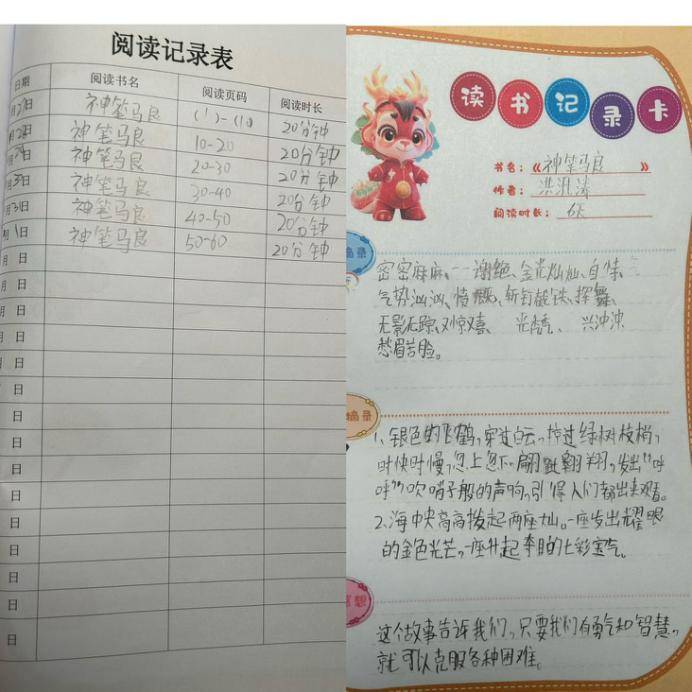 阅读记录表
日期 阅读书名 阅读页码 阅读时长
日 神笔马良 (1)-(10) 20分钟
日 神笔马良 10-20 20分钟
日 神笔马良 20-30 20分钟
日 神笔马良 30-40 20分钟
日 神笔马良 40-50 20分钟
月1日 神笔马良 50-60 20分钟
月 日
月 日
月 日
月 日
月 日
日
日
日
日
日
日
日
日
日
日
读书记录卡
书名：《神笔马良》
作者：洪汛涛
阅读时长：6天
摘录
密密麻麻、谢绝、金光灿灿、自信、
气势汹汹、愤怒、斩钉截铁、挥舞、
无影无踪、又惊又喜、光秃秃、兴冲冲
愁眉苦脸。
摘录
1、银色的飞鹤，穿过白云，掠过绿树枝梢，
时快时慢，忽上忽下翩跹翱翔，发出“呼
呼”吹哨子般的声响，引得人们都出来观看。
2、海中央高高拨起两座山。一座发出耀眼
的金色光芒，一座升起夺目的七彩宝气。
感想
这个故事告诉我们，只要我们有勇气和智慧，
就可以克服各种困难。